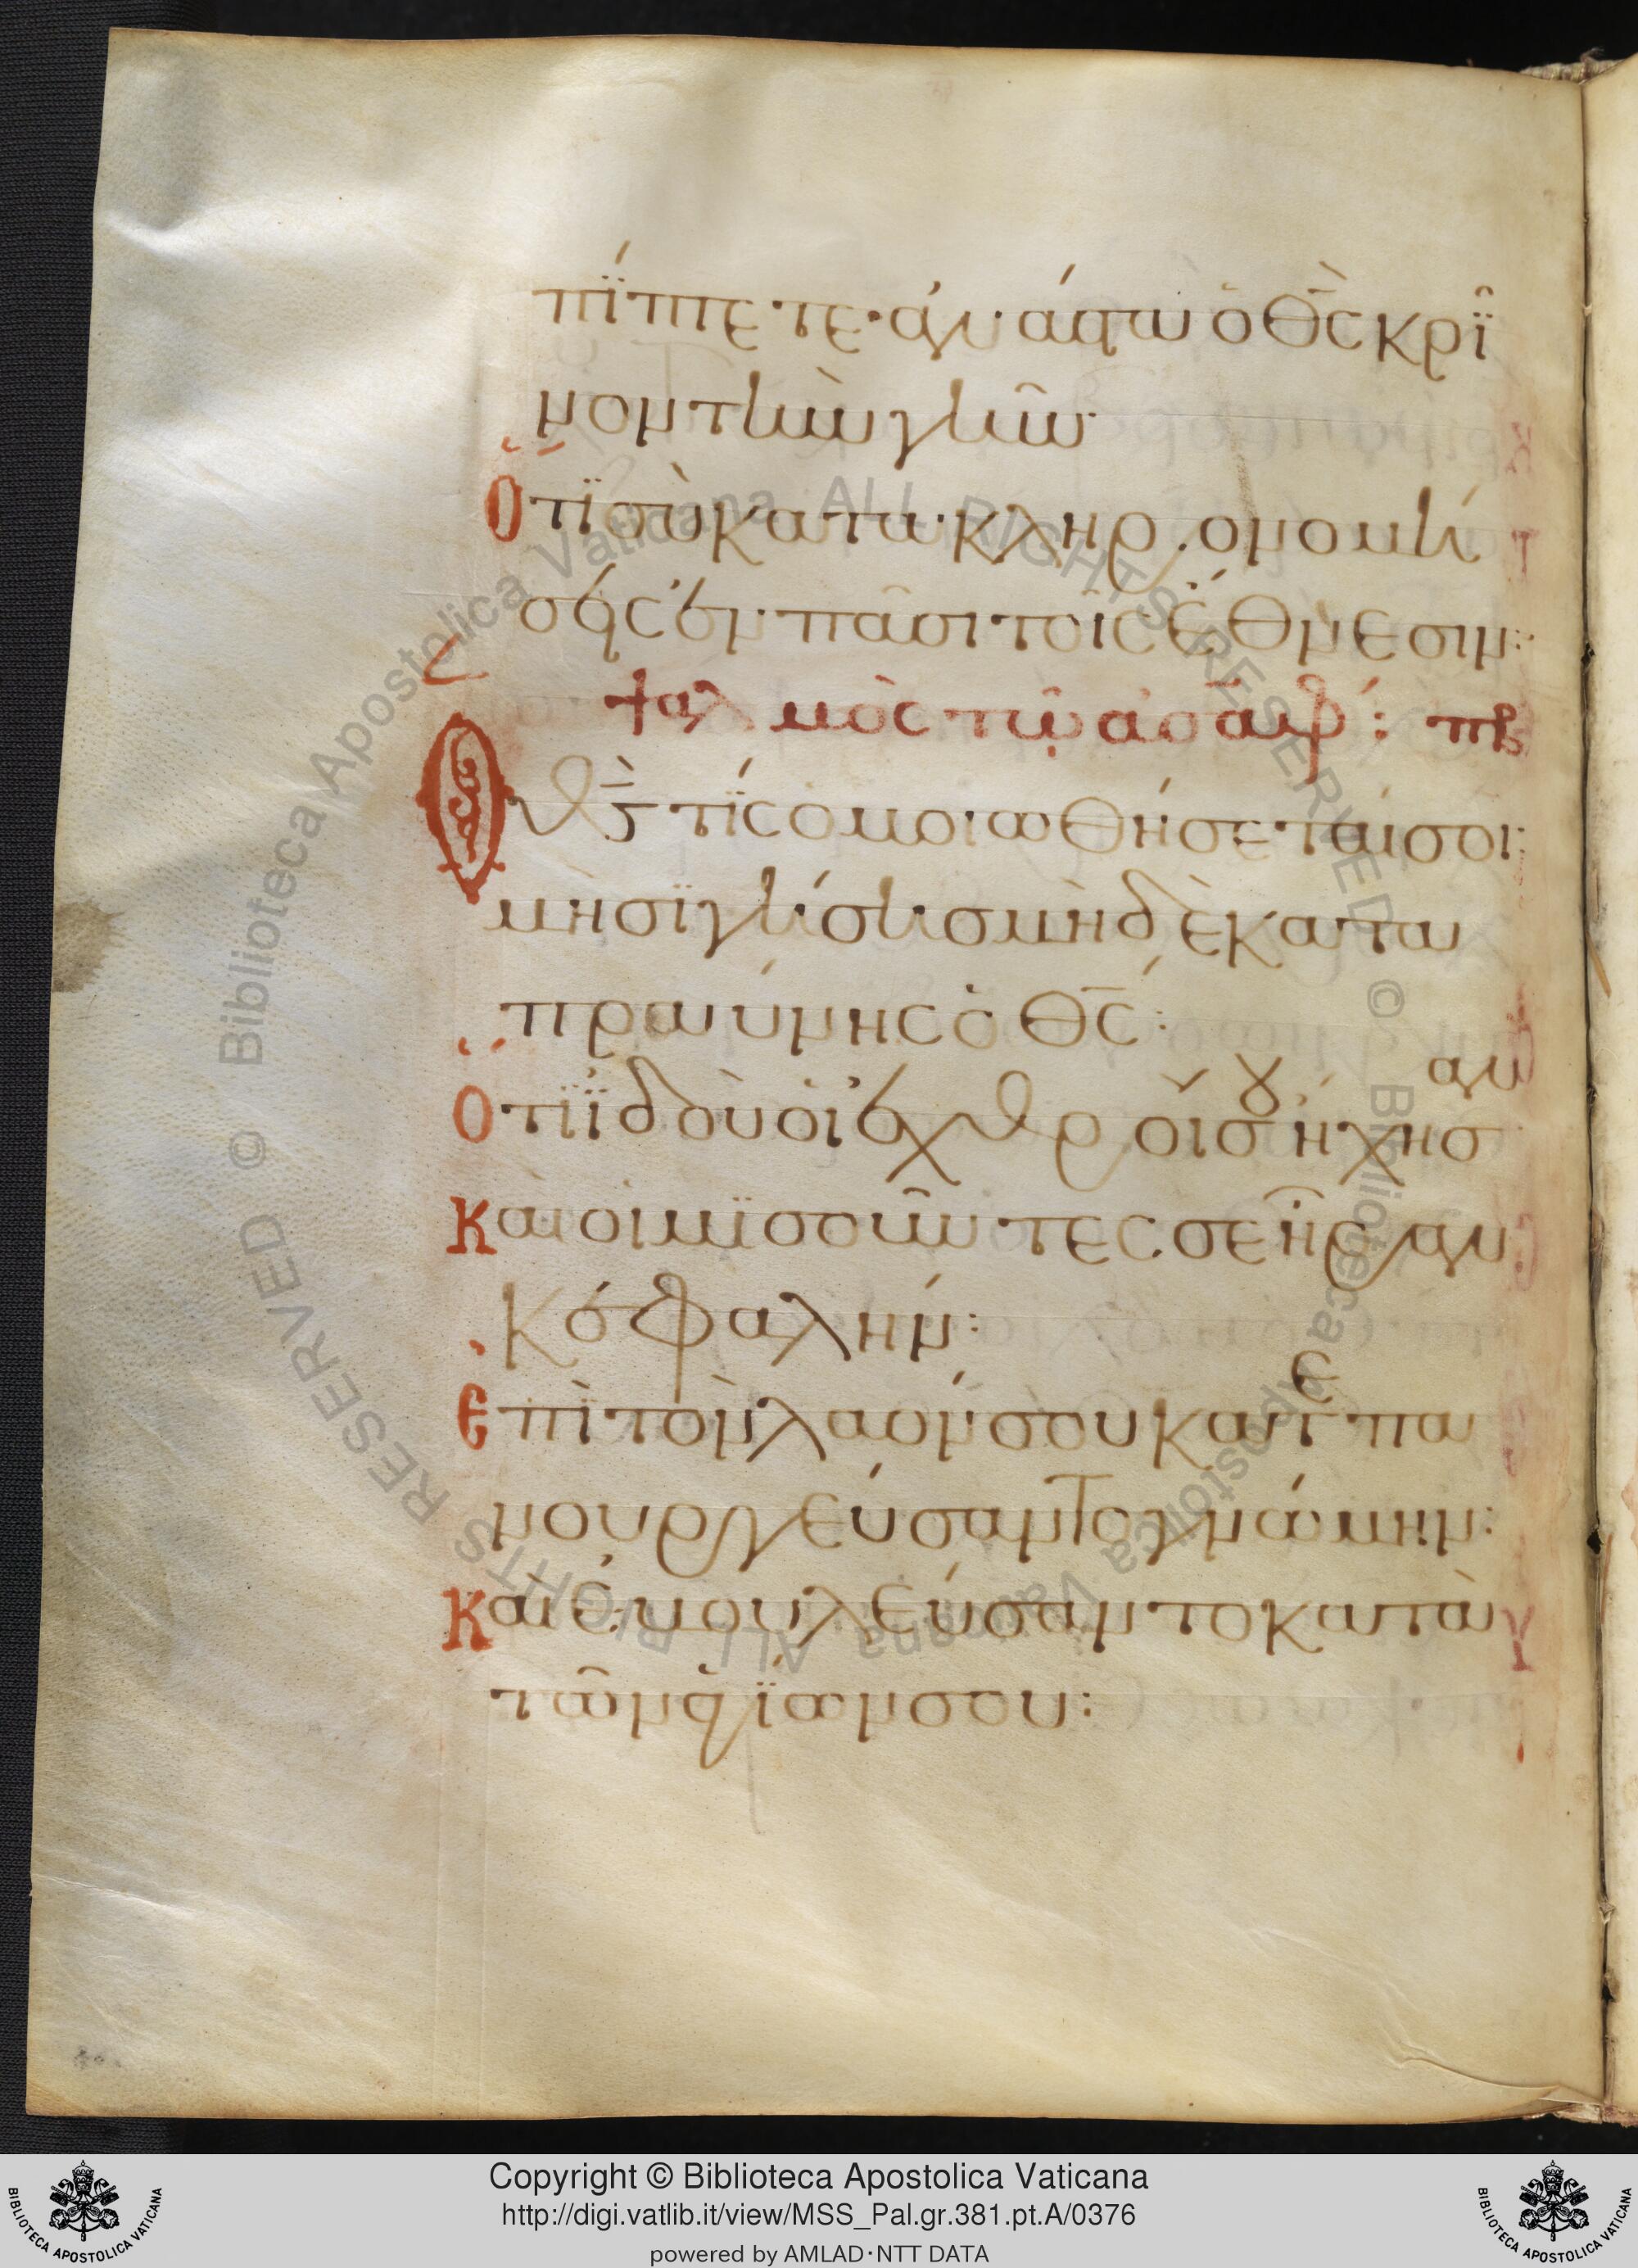 πίπτετε· ἀνάστα ὁ θς κρῖ
νον τὴν γῆν·
Ὅτι σὺ κατακληρονομή
σεις ἐν πᾶσι τοῖς ἔθνεσιν:
ψαλμὸς τῷ ἀσάφ: πβ
Ὁ θς τίς ὁμοιωθήσεταί σοι:
μὴ σιγήσησ μηδὲ κατα
πραύνης ὁ θς:
Ὅτι ϊδοὺ οἱ ἐχθροί σου ἤχησαν
Καὶ οἱ μισοῦντες σε ἦραν
κεφαλήν:
Ἐπὶ τὸν λαόν σου κατεπα
νουργεύσαντο γνώμην:
Καὶ ἐβουλεύσαντο κατὰ
τῶν ἁγίων σου:
Copyright © Biblioteca Apostolica Vaticana
http://digi.vatlib.it/view/MSS_Pal.gr.381.pt.A/0376
powered by AMLAD·NTT DATA
BIBLIOTECA APOSTOLICA VATICANA
BIBLIOTECA APOSTOLICA VATICANA
© Biblioteca Apostolica Vaticana ALL RIGHTS RESERVED © Biblioteca Apostolica Vaticana ALL RIGHTS RESERVED